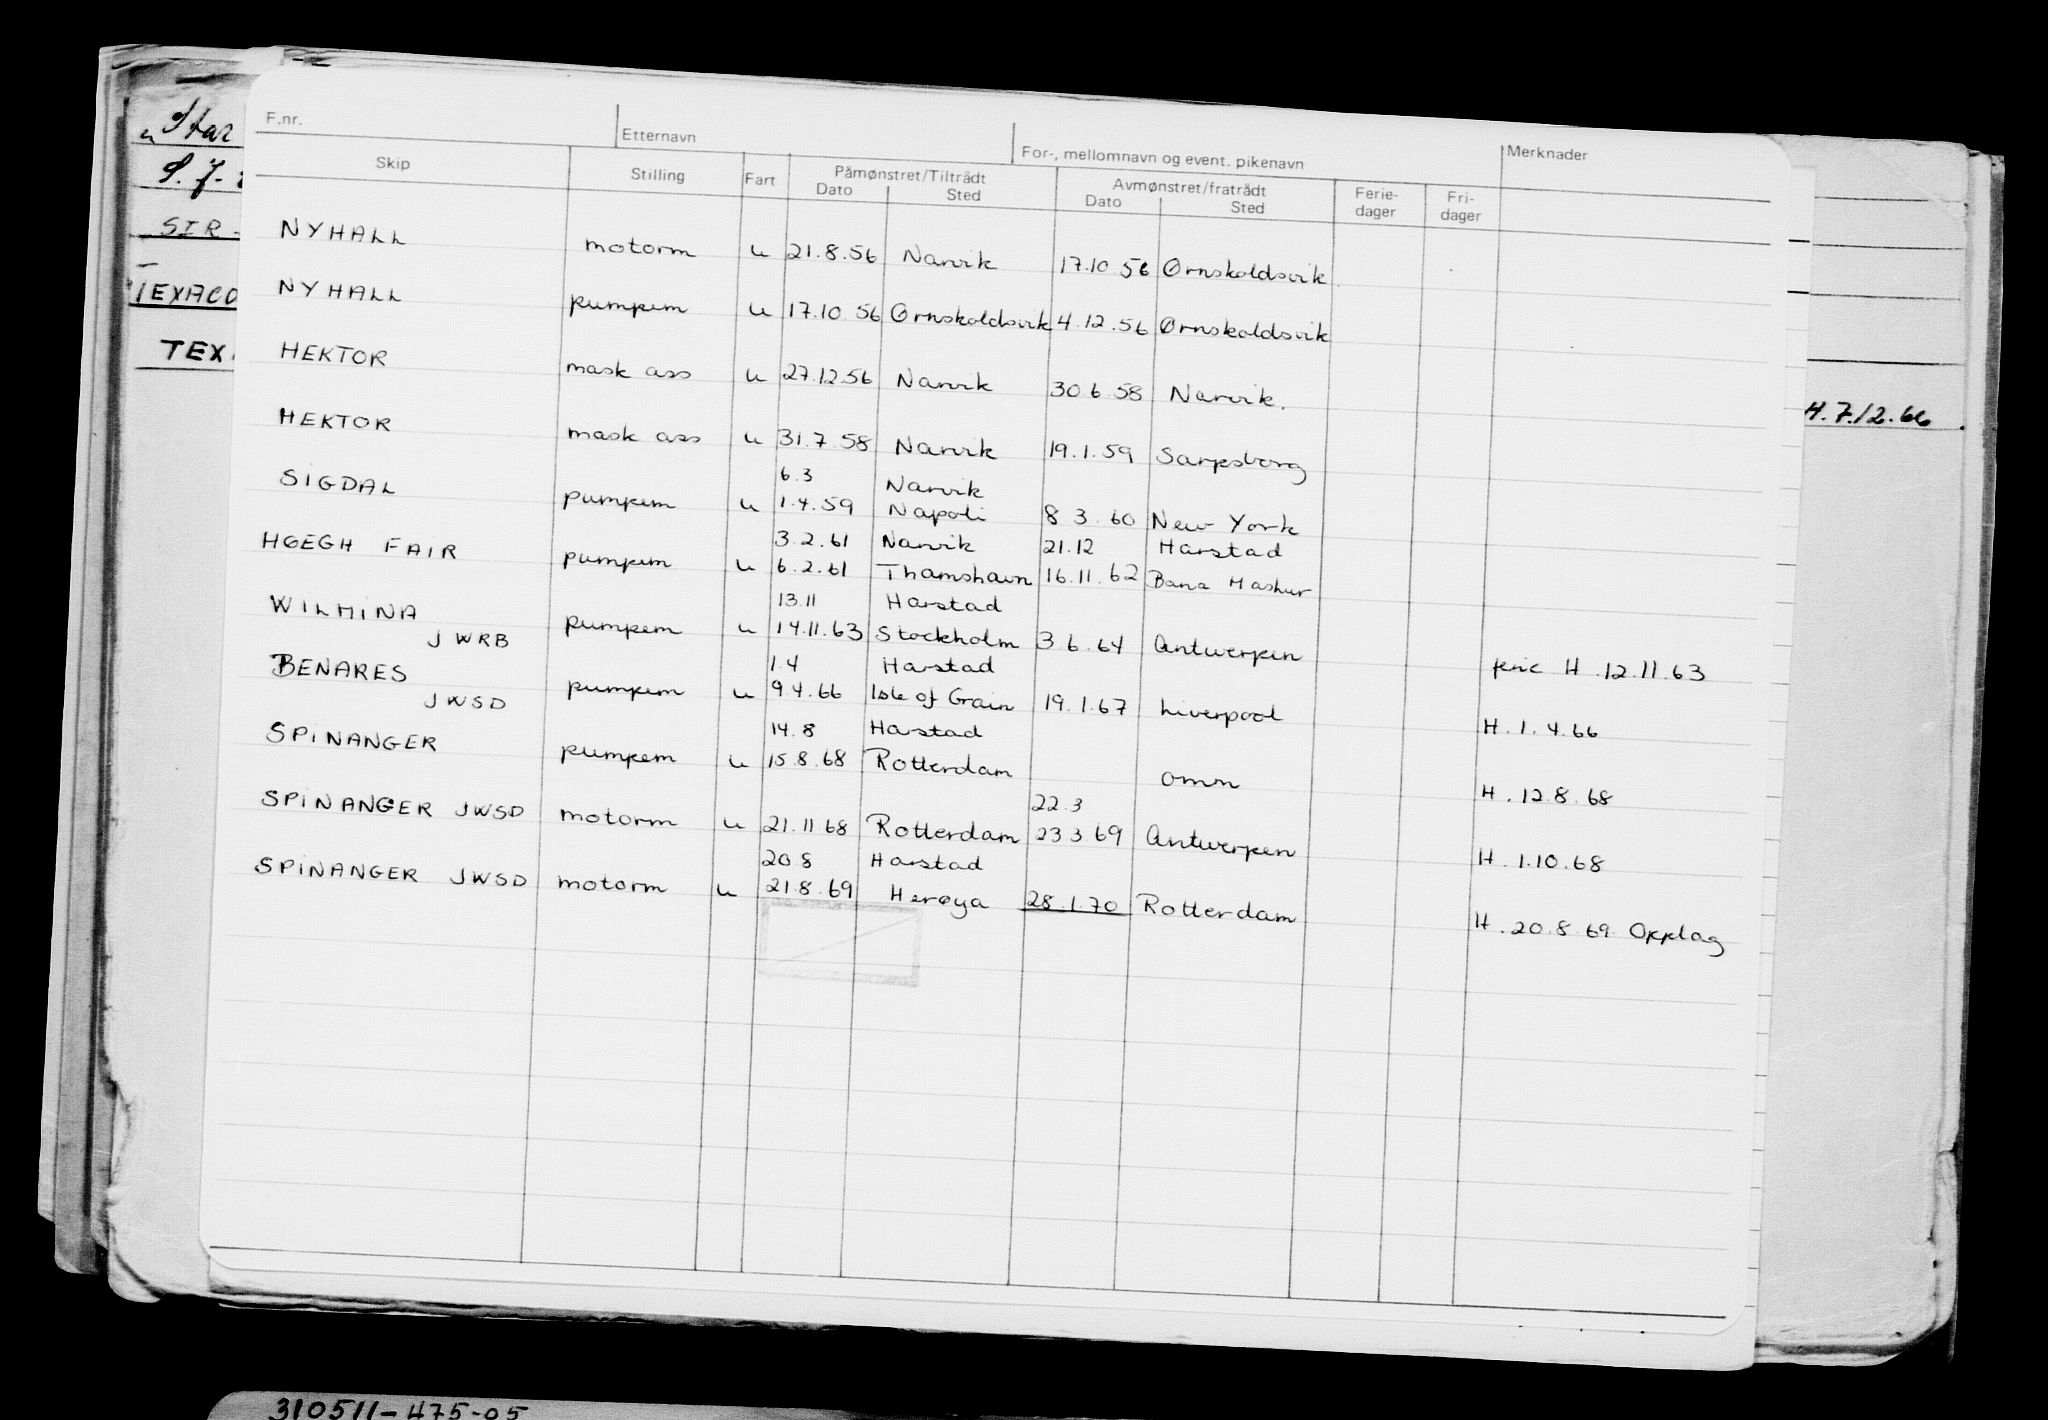 F.nr. Etternavn For-, mellomnavn og event. pikenavn Merknader
Skip Stilling Fart Påmønstret/Tiltrådt Avmønstret/fratrådt Ferie-dager Fri-dager
Dato Sted Dato Sted
NYHALL motorm u 21.8.56 Narvik 17.10 56 Ørnskoldsvik
NYHALL pumpem u 17.10 56 Ørnskoldsvik 4.12.56 Ørnskoldsvik
HEKTOR mask ass u 27.12.56 Narvik 30 6.58 Narvik.
HEKTOR mask ass u 31.7.58 Narvik 19.1.59 Sarpsborg
6.3 Narvik
SIGDAL pumpem u 1.4.59 Napoli 8 3.60 New York
3.2.61 Narvik 21.12 Harstad
HØEGH FAIR pumpem u 6.2.61 Thamshavn 16.11.62 Bana Mashur
13.11 Harstad
WILMINA pumpem u 14.11.63 Stockholm 3.6.64 Antwerpen H.12.11.63
JWRB
1.4 Harstad
BENARES pumpem u 9.4.66 Isle of Grain 19.1.67 Liverpool H.1.4.66
JWSD
14.8 Harstad
SPINANGER pumpem u 15.8.68 Rotterdam omm H.12.8.68
22.3
SPINANGER JWSD motorm u 21.11 68 Rotterdam 23 3 69 Antwerpen H.1.10.68
20 8 Harstad
SPINANGER JWSD motorm u 21.8.69 Herøya 28.1.70 Rotterdam H.20.8.69 Opplag
"Star
SIR-
TEXACO
TEX
H.7.12.66
310511-475-05